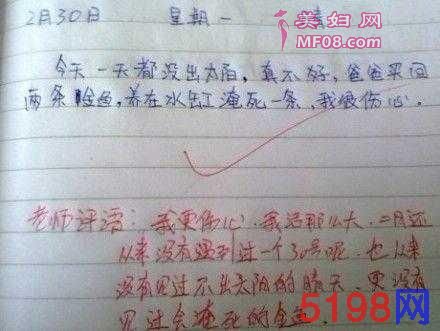 2月30日 星期一 晴
美妇网
MF08.com
今天一天都没出太阳，真不好，爸爸买回
两条金鱼，养在水缸淹死一条，我很伤心。
老师评语：我更伤心，我活那么大，二月还
从来没有遇到过一个30号呢，也从来
没有见过不出太阳的晴天，更没有
见过会淹死的金鱼。
5198网